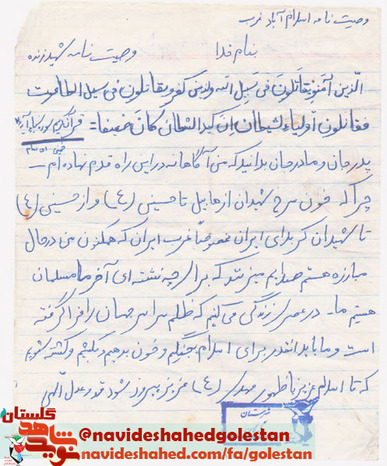 وصیت نامه اسلام آباد غرب
بنام خدا
وصیت نامه شهید زنده
الذین آمنو یقاتلون فی سبیل الله والذین کفرو یقاتلون فی سبیل الطاغوت
فقاتلون اولیاء الشیطان ان کید الشیطان کان ضعیفا = قرآن کریم سوره
پدر جان و مادر جان بدانید که من آگاهانه در این راه قدم نهاده ام –
چرا که خون سرخ شهیدان از هابیل تا حسینی (ع) و از حسینی (ع)
تا شهیدان کربلای ایران مخصوصاً غرب ایران که هم اکنون من در حال
مبارزه هستم صدایم میزند که برادر چه نشسته ای آخر ما مسلمان
هستیم ما - در عصری زندگی می کنیم که ظلم سراسر جهان را فرا گرفته
است و ما باید انقدر برای اسلام بجنگیم و خون بدهیم و بکشیم و کشته شویم
که تا اسلام عزیز تا ظهور مهدی (ع) عزیز پیروز شود و عدل الهی
گلستان
نوید شاهد
@navideshahedgolestan
navideshahed.com/fa/golestan